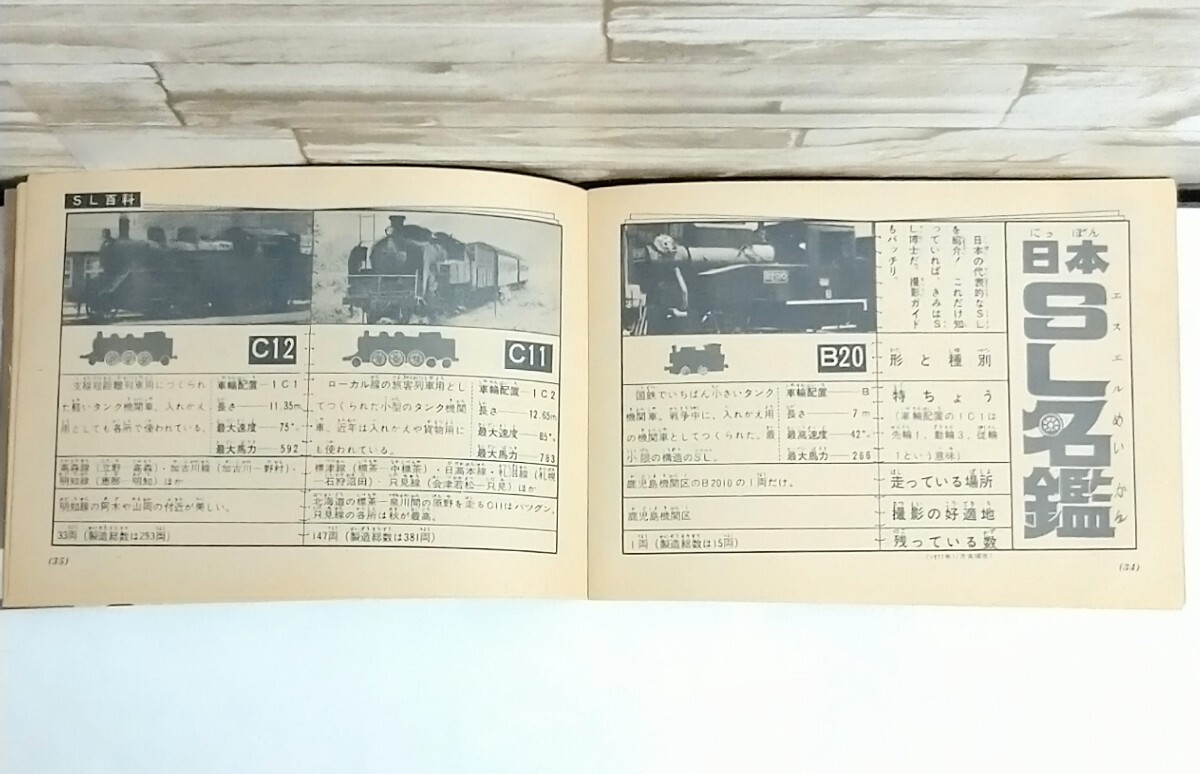 にっぽん
日本
SL名鑑
エスエルめいかん
日本の代表的なSL
を紹介！これだけ知
っていれば、きみはS
L博士だ。撮影ガイド
もバッチリ。
形と種別
特ちょう
(車輪配置の1C1は
先輪1、動輪3、従輪
1という意味)
走っている場所
撮影の好適地
残っている数
B20
国鉄でいちばん小さいタンク
機関車。戦争中に、入れかえ用
の機関車としてつくられた。最
小限の構造のSL。
車輪配置 B
長さ 7m
最高速度 42
最大馬力 266
鹿児島機関区のB2010の1両だけ。
鹿児島機関区
1両(製造総数は15両)
(34)
SL百科
C11
ローカル線の旅客列車用とし
てつくられた小型のタンク機関
車、近年は入れかえや貨物用に
も使われている。
車輪配置 1C2
長さ 12.65m
最大速度 85
最大馬力 763
標津線(標茶―中標茶)・日高本線・札沼線(札幌
―石狩沼田)・只見線(会津若松―只見)ほか
北海道の標茶―泉川間の原野を走るC11はバツグン。
只見線の各所は秋が最高。
147両(製造総数は381両)
C12
支線短距離列車用につくられ
た軽いタンク機関車。入れかえ
用としても各所で使われている。
車輪配置 1C1
長さ 11.35m
最大速度 75
最大馬力 592
高森線(立野―高森)・加古川線(加古川―野村)・
明知線(恵那―明知)ほか
明知線の阿木や山岡の付近が美しい。
33両(製造総数は293両)
(35)